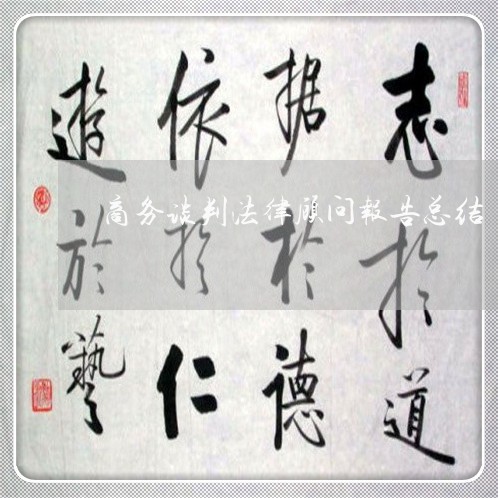 志於道
据於德
依於仁
遊於藝
商务谈判法律顾问报告总结